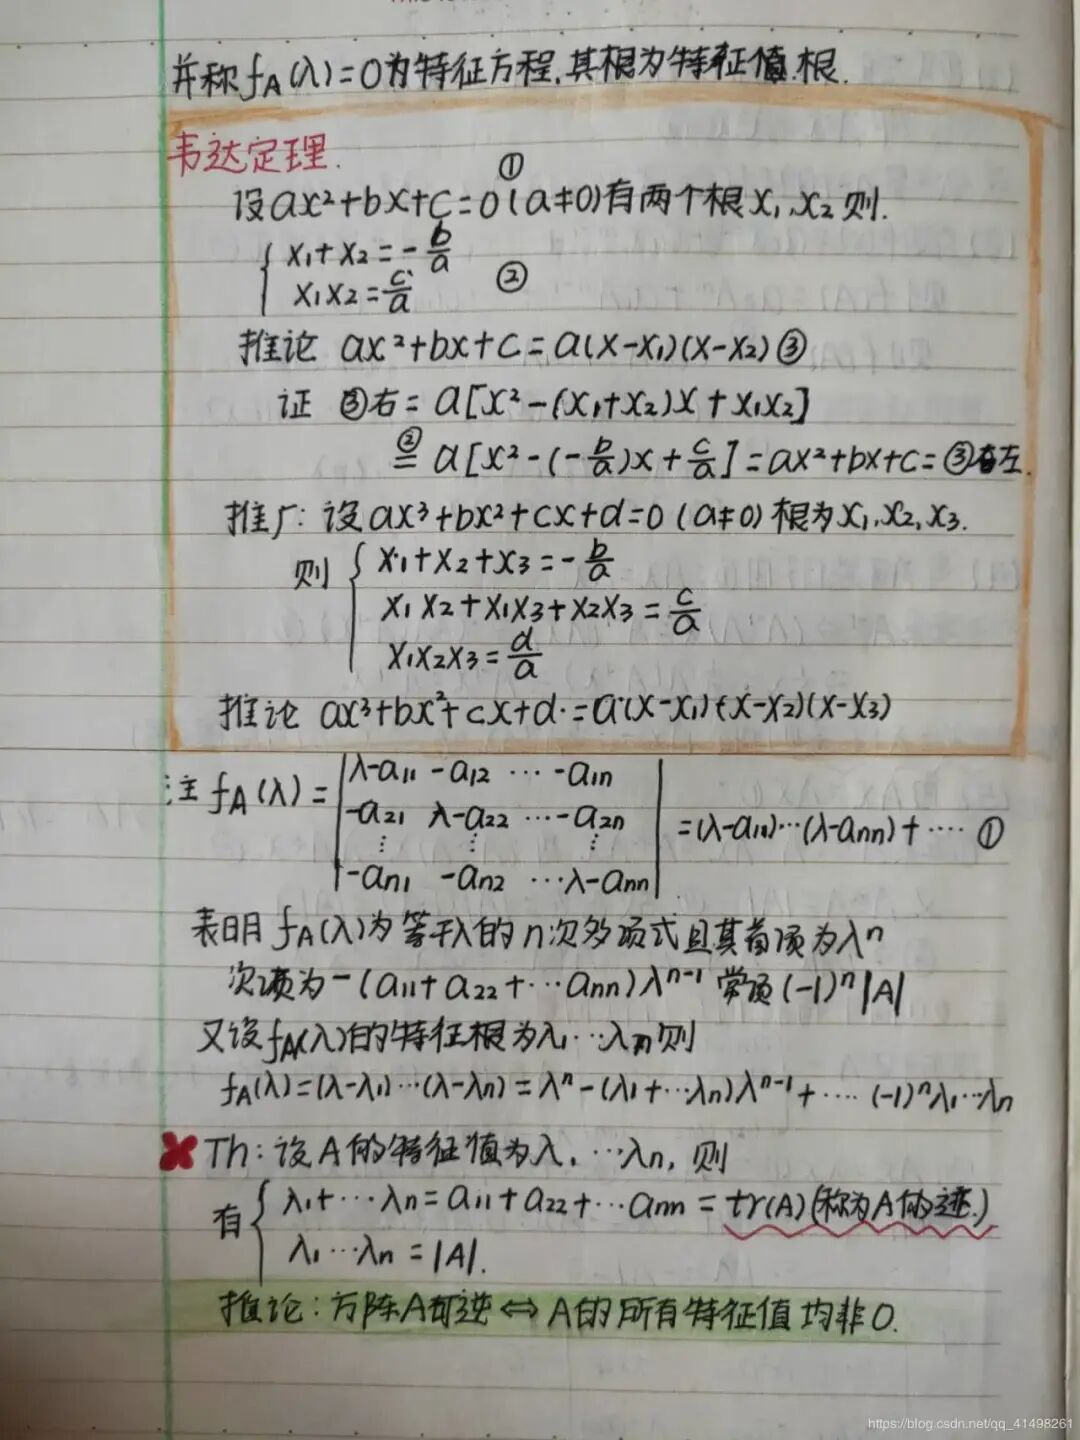 并称 f_A(λ)=0为特征方程,其根为特征值.根.
韦达定理.
①
设ax²+bx+c=0(a≠0)有两个根x₁、x₂则.
{ x₁+x₂=-b/a
x₁x₂=c/a ②
推论 ax²+bx+c=a(x-x₁)(x-x₂)③
证 ③右=a[x²-(x₁+x₂)x+x₁x₂]
②= a[x²-(-b/a)x+c/a]=ax²+bx+c=③左.
推广:设ax³+bx²+cx+d=0(a≠0)根为x₁,x₂,x₃.
则 { x₁+x₂+x₃=-b/a
x₁x₂+x₁x₃+x₂x₃=c/a
x₁x₂x₃=d/a
推论 ax³+bx²+cx+d=a(x-x₁)(x-x₂)(x-x₃)
注 f_A(λ)= |λ-a₁₁ -a₁₂ … -a₁n
-a₂₁ λ-a₂₂ … -a₂n
⋮ ⋮ ⋮
-an₁ -an₂ …λ-ann| =(λ-a₁₁)…(λ-ann)+…. ①
表明 f_A(λ)为等于λ的n次多项式且其首项为λⁿ
次项为-(a₁₁+a₂₂+…ann)λⁿ⁻¹ 常项(-1)ⁿ|A|
又设f_A(λ)的特征根为λ₁…λn则
f_A(λ)=(λ-λ₁)…(λ-λn)=λⁿ-(λ₁+…λn)λⁿ⁻¹+…. (-1)ⁿλ₁…λn
Th:设A的特征值为λ₁…λn,则
有 { λ₁+…λn=a₁₁+a₂₂+…ann=tr(A)(称为A的迹.)
λ₁…λn=|A|.
推论:方阵A可逆⇔A的所有特征值均非0.
https://blog.csdn.net/qq_41498261